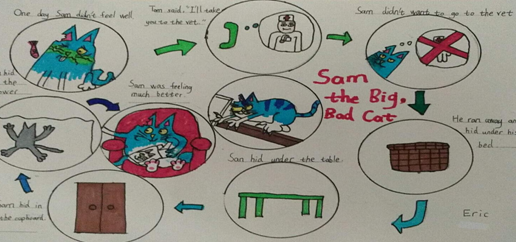 One day Sam didn't feel well.
Tom said, "I'll take
you to the vet."
Sam didn't want to go to the vet
Sam
the Big,
Bad Cat
He ran away
hid under his
bed
Sam hid under the table.
hid in
the cupboard.
hid
the
Sam was feeling
much better.
Eric